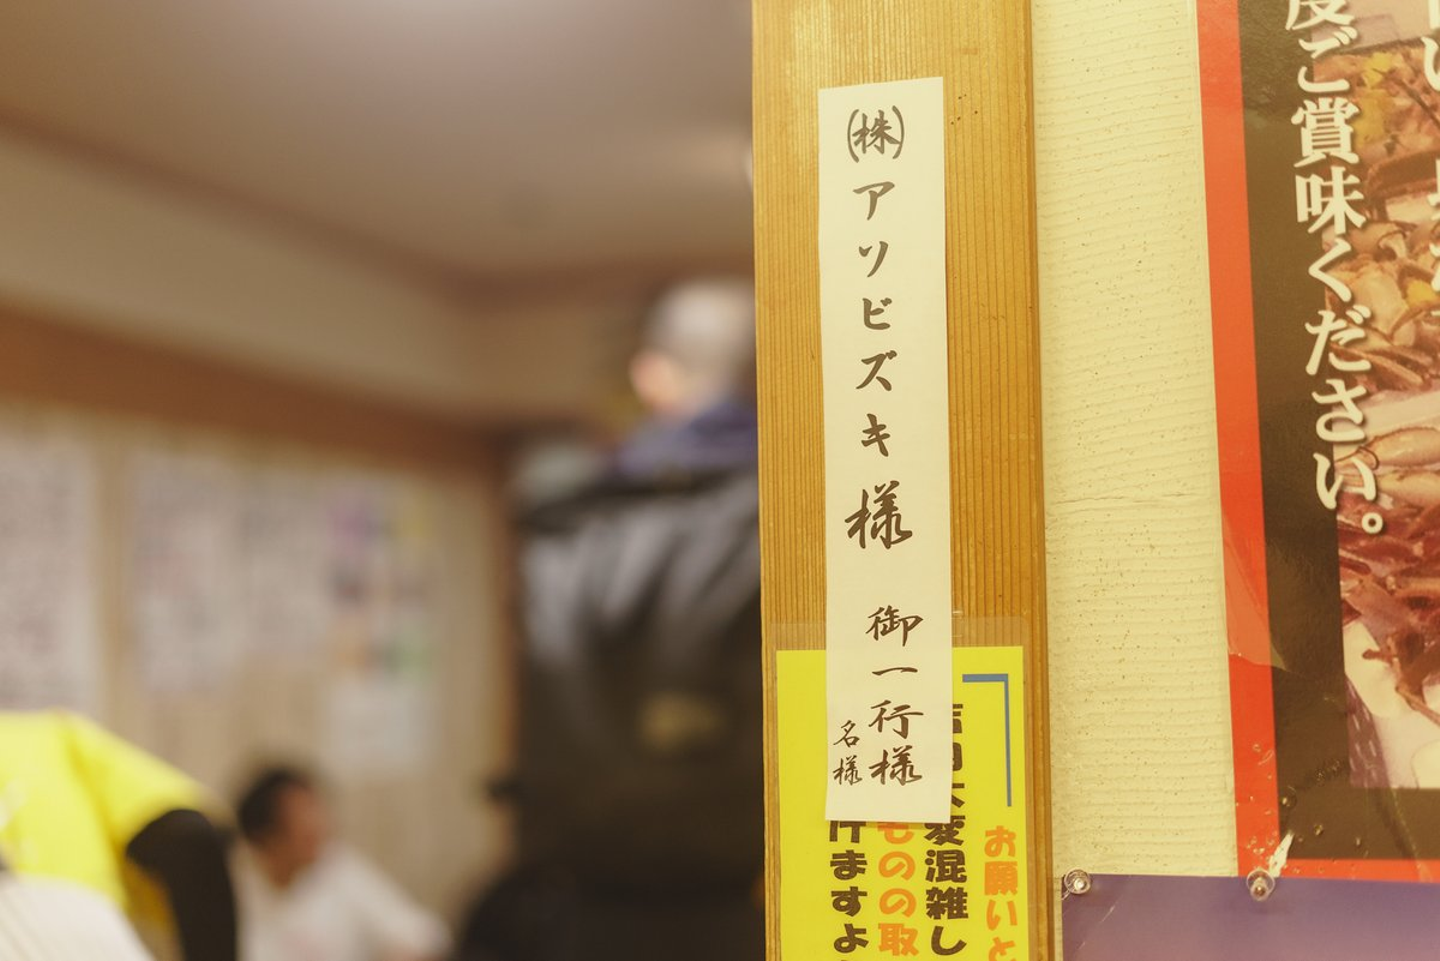 ㈱アソビズキ様 御一行様
名様
度ご賞味ください。
お願いと
店内大変混雑し
ものの取
けますよ